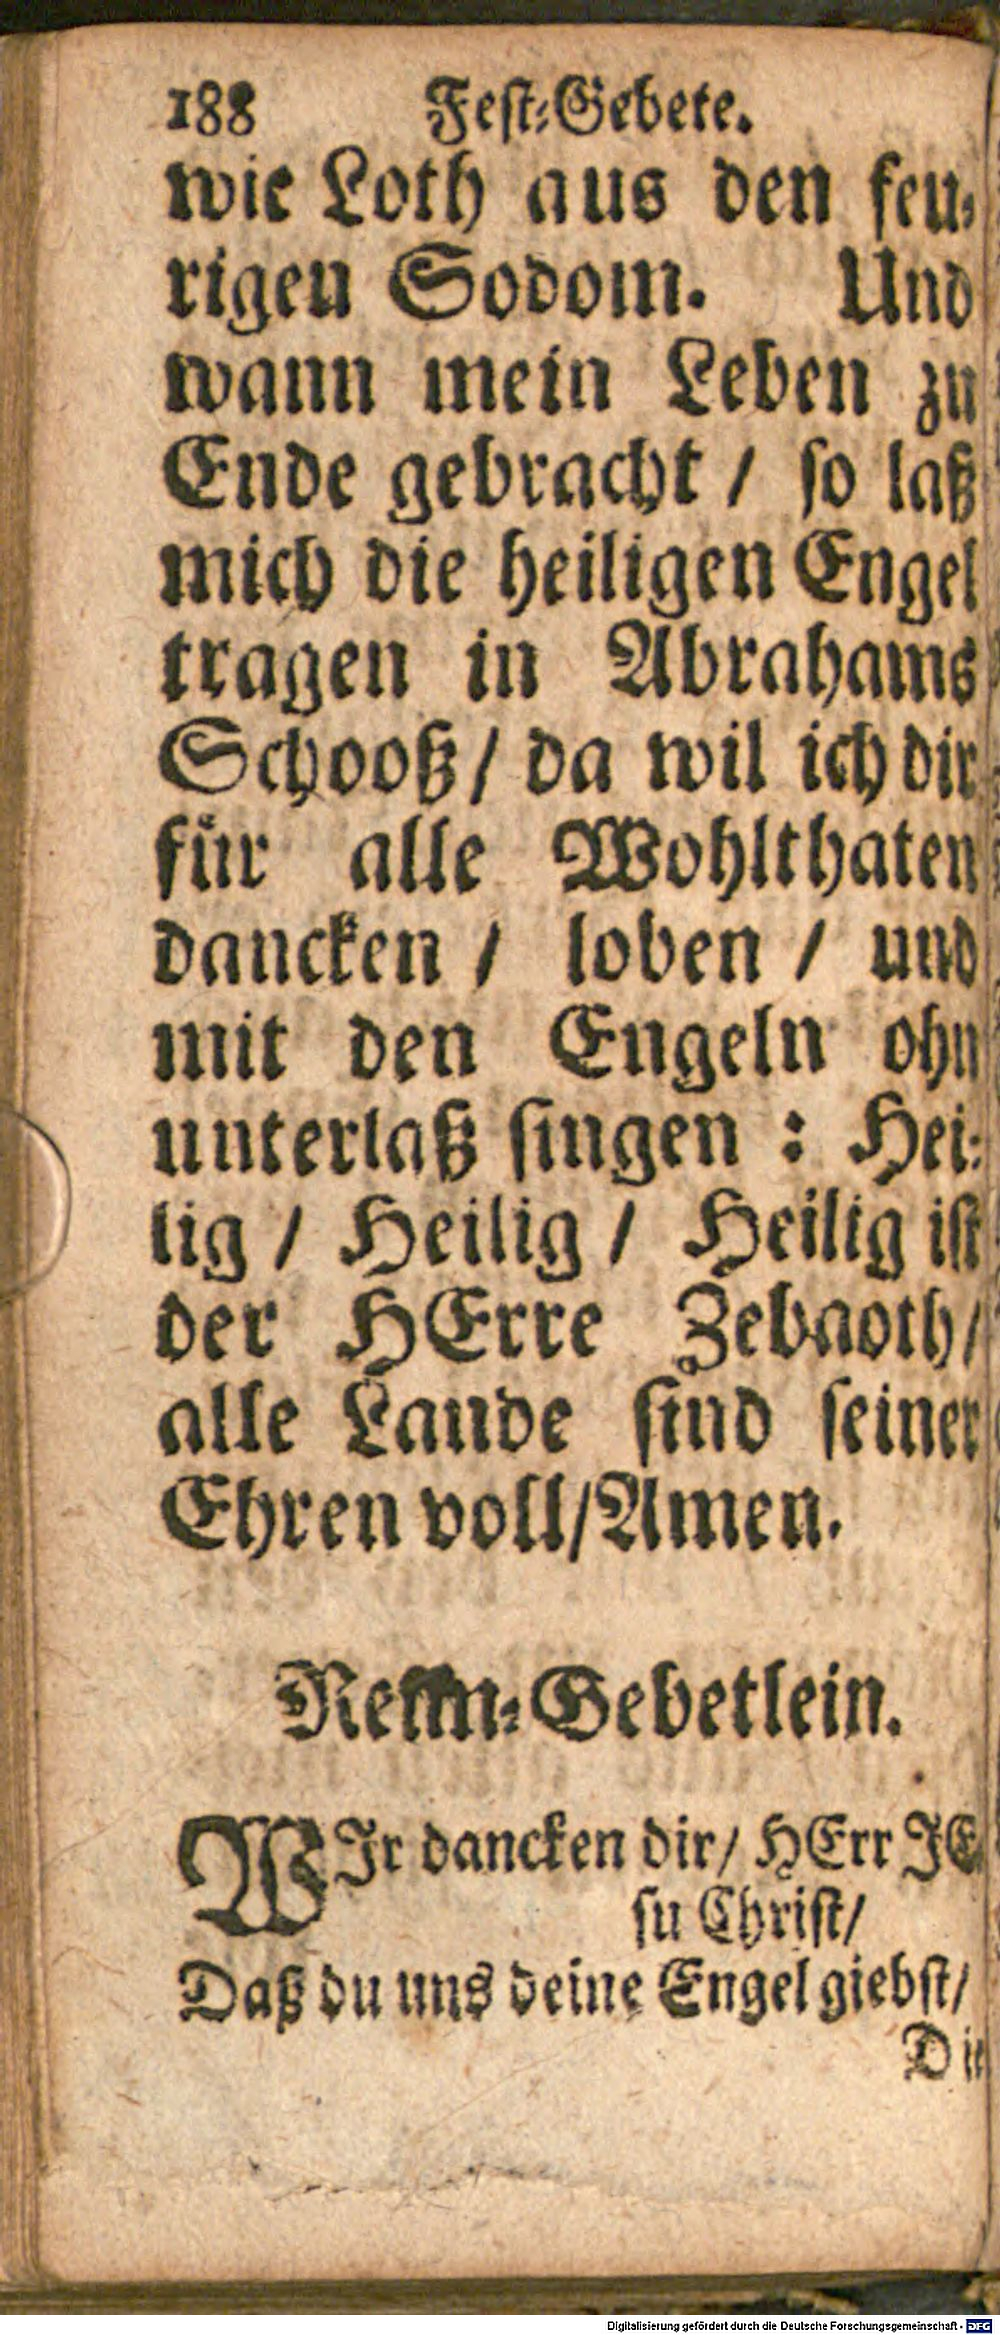 188 Fest-Gebete.
wie Loth aus den feu-
rigen Sodom. Und
wann mein Leben zu
Ende gebracht / so laß
mich die heiligen Engel
tragen in Abrahams
Schooß / da wil ich dir
für alle Wohlthaten
dancken / loben / und
mit den Engeln ohn
unterlaß singen : Hei-
lig / Heilig / Heilig ist
der HErre Zebaoth /
alle Lande sind seiner
Ehren voll / Amen.
Reim-Gebetlein.
WJr dancken dir / HErr JE
su Christ /
Daß du uns deine Engel giebst /
Die
Digitalisierung gefördert durch die Deutsche Forschungsgemeinschaft - DFG